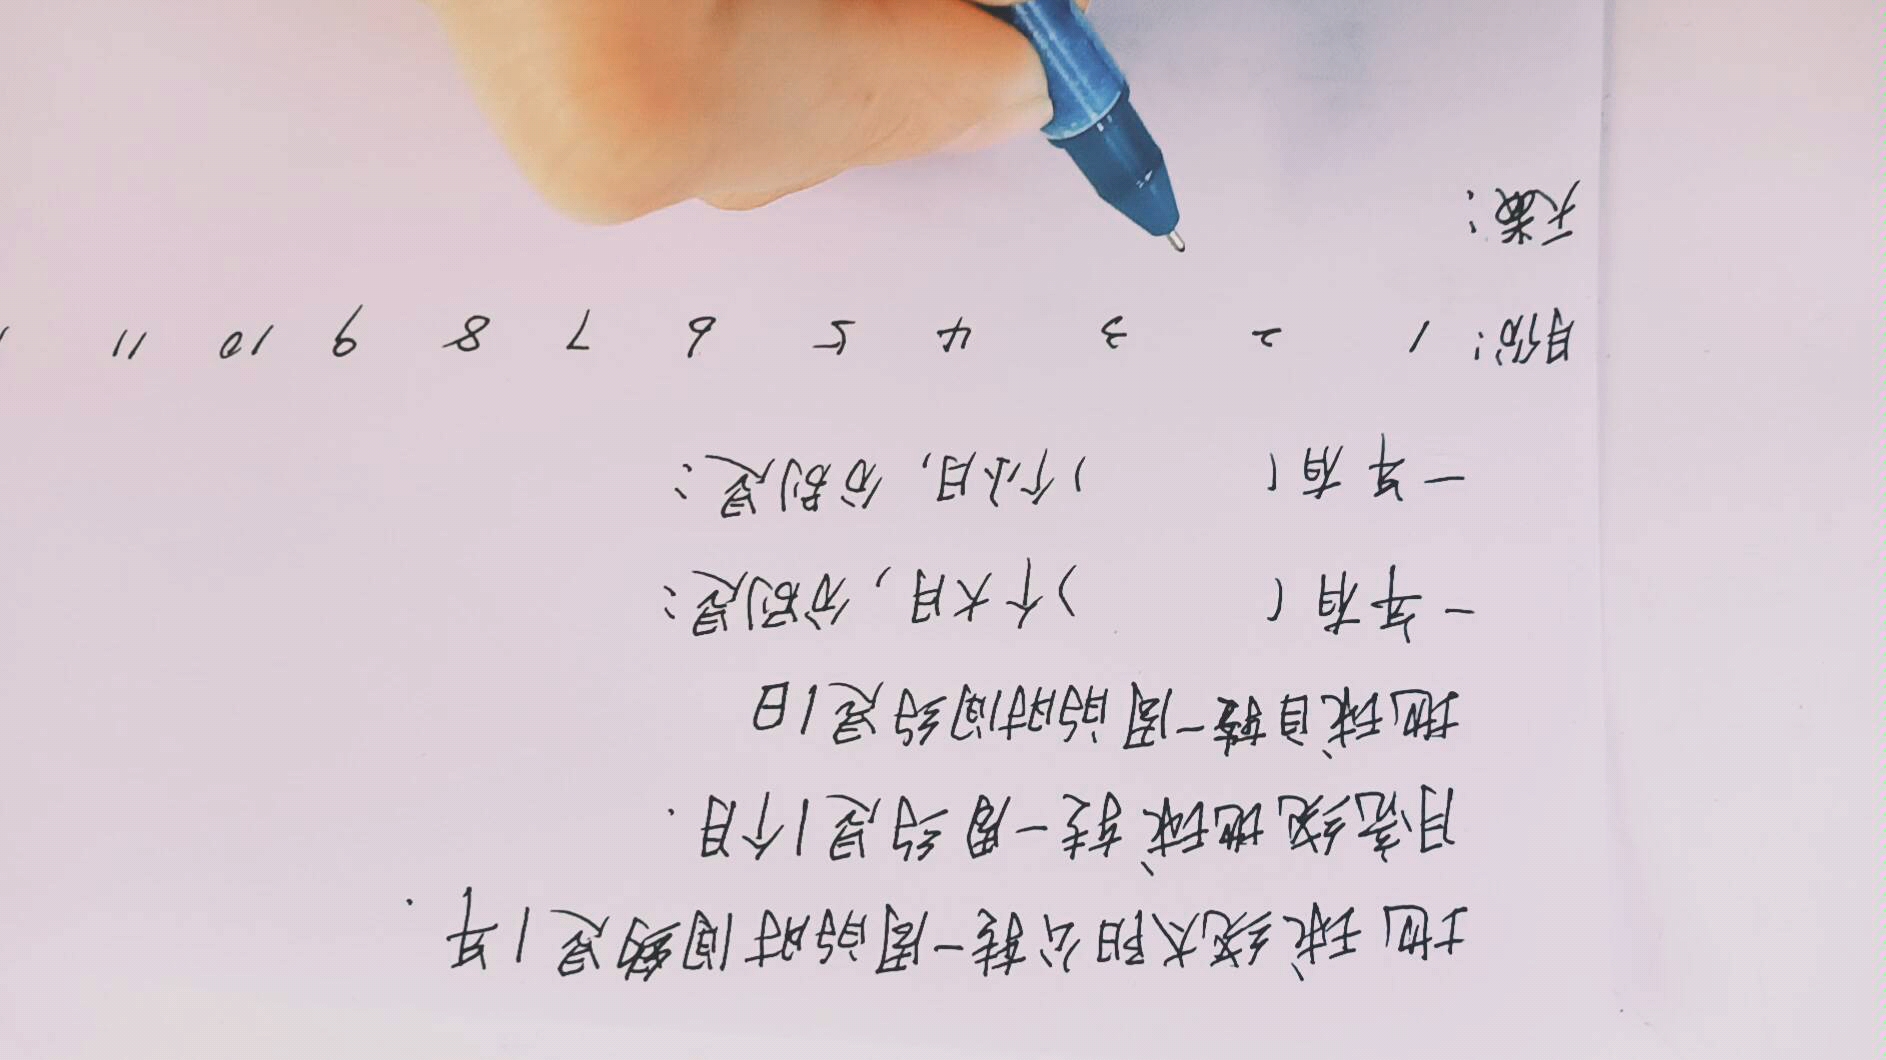 地球绕太阳公转一周的时间约是1年.
月亮绕地球转一周约是1个月.
地球自转一周的时间约是1日
一年有( )个大月,分别是:
一年有( )个小月,分别是:
月份: 1 2 3 4 5 6 7 8 9 10 11
天数: